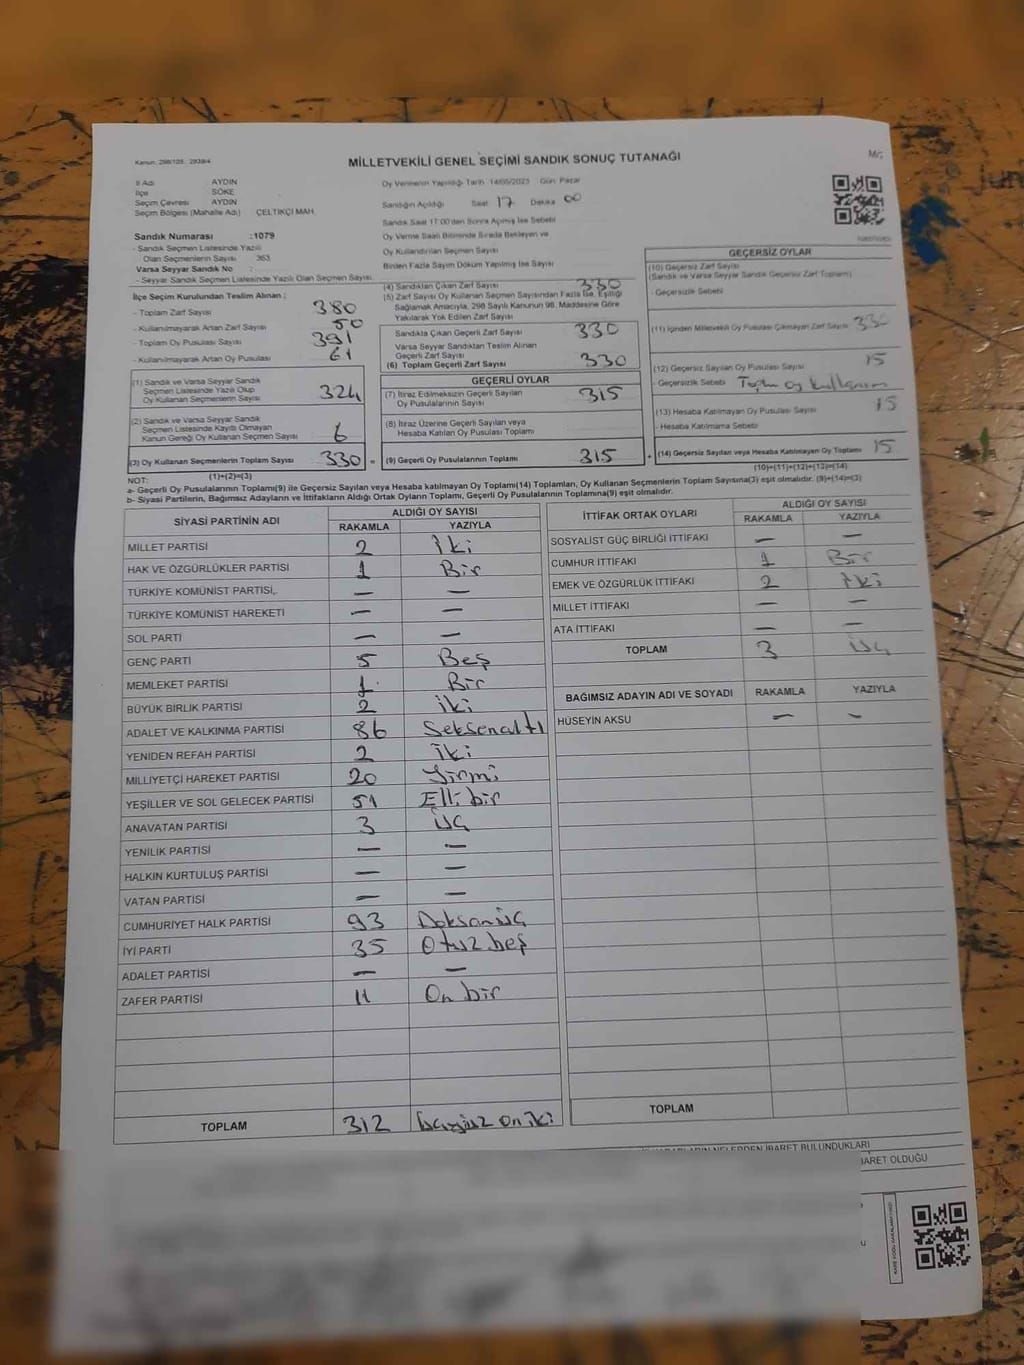 Kanun: 298/105 ; 2839/4
MİLLETVEKİLİ GENEL SEÇİMİ SANDIK SONUÇ TUTANAĞI
İl Adı AYDIN
İlçe SÖKE
Seçim Çevresi AYDIN
Seçim Bölgesi (Mahalle Adı) ÇELTİKÇİ MAH.
Sandık Numarası : 1079
- Sandık Seçmen Listesinde Yazılı
Olan Seçmenlerin Sayısı 363
Varsa Seyyar Sandık No :
- Seyyar Sandık Seçmen Listesinde Yazılı Olan Seçmen Sayısı
Oy Vermenin Yapıldığı Tarih : 14/05/2023 Gün: Pazar
Sandığın Açıldığı Saat 17 Dakika 00
Sandık Saat 17:00'den Sonra Açılmış İse Sebebi
Oy Verme Saati Bitiminde Sırada Bekleyen ve
Oy Kullandırılan Seçmen Sayısı
Birden Fazla Sayım Döküm Yapılmış İse Sayısı
İlçe Seçim Kurulundan Teslim Alınan ;
- Toplam Zarf Sayısı 380
- Kullanılmayarak Artan Zarf Sayısı 50
- Toplam Oy Pusulası Sayısı 391
- Kullanılmayarak Artan Oy Pusulası 61
(1) Sandık ve Varsa Seyyar Sandık
Seçmen Listesinde Yazılı Olup
Oy Kullanan Seçmenlerin Sayısı 324
(2) Sandık ve Varsa Seyyar Sandık
Seçmen Listesinde Kayıtlı Olmayan
Kanun Gereği Oy Kullanan Seçmen Sayısı 6
(3) Oy Kullanan Seçmenlerin Toplam Sayısı 330
(1)+(2)=(3)
(4) Sandıktan Çıkan Zarf Sayısı 330
(5) Zarf Sayısı Oy Kullanan Seçmen Sayısından Fazla İse, Eşitliği
Sağlamak Amacıyla, 298 Sayılı Kanunun 98. Maddesine Göre
Yakılarak Yok Edilen Zarf Sayısı
Sandıkta Çıkan Geçerli Zarf Sayısı 330
Varsa Seyyar Sandıktan Teslim Alınan
Geçerli Zarf Sayısı
(6) Toplam Geçerli Zarf Sayısı 330
GEÇERLİ OYLAR
(7) İtiraz Edilmeksizin Geçerli Sayılan
Oy Pusulalarının Sayısı 315
(8) İtiraz Üzerine Geçerli Sayılan veya
Hesaba Katılan Oy Pusulası Toplamı
(9) Geçerli Oy Pusulalarının Toplamı 315
GEÇERSİZ OYLAR
(10) Geçersiz Zarf Sayısı
(Sandık ve Varsa Seyyar Sandık Geçersiz Zarf Toplamı)
- Geçersizlik Sebebi
(11) İçinden Milletvekili Oy Pusulası Çıkmayan Zarf Sayısı 330
(12) Geçersiz Sayılan Oy Pusulası Sayısı 15
- Geçersizlik Sebebi
(13) Hesaba Katılmayan Oy Pusulası Sayısı 15
- Hesaba Katılmama Sebebi
(14) Geçersiz Sayılan veya Hesaba Katılmayan Oy Toplamı 15
(10)+(11)+(12)+(13)=(14)
NOT:
a- Geçerli Oy Pusulaları(9) ile Geçersiz Sayılan veya Hesaba katılmayan Oy Toplamı(14) Toplamları, Oy Kullanan Seçmenlerin Toplam Sayısına(3) eşit olmalıdır. (9)+(14)=(3)
b- Siyasi Partilerin, Bağımsız Adayların ve İttifakların Aldığı Ortak Oyların Toplamı, Geçerli Oy Pusulalarının Toplamına(9) eşit olmalıdır.
SİYASİ PARTİNİN ADI ALDIĞI OY SAYISI
RAKAMLA YAZIYLA
MİLLET PARTİSİ 2 İki
HAK VE ÖZGÜRLÜKLER PARTİSİ 1 Bir
TÜRKİYE KOMÜNİST PARTİSİ — —
TÜRKİYE KOMÜNİST HAREKETİ — —
SOL PARTİ — —
GENÇ PARTİ 5 Beş
MEMLEKET PARTİSİ 1 Bir
BÜYÜK BİRLİK PARTİSİ 2 İki
ADALET VE KALKINMA PARTİSİ 86 Seksenaltı
YENİDEN REFAH PARTİSİ 2 İki
MİLLİYETÇİ HAREKET PARTİSİ 20 Yirmi
YEŞİLLER VE SOL GELECEK PARTİSİ 51 Elli bir
ANAVATAN PARTİSİ 3 Üç
YENİLİK PARTİSİ — —
HALKIN KURTULUŞ PARTİSİ — —
VATAN PARTİSİ — —
CUMHURİYET HALK PARTİSİ 93 Doksanüç
İYİ PARTİ 35 Otuz beş
ADALET PARTİSİ — —
ZAFER PARTİSİ 11 On bir
TOPLAM 312 üçyüz on iki
İTTİFAK ORTAK OYLARI ALDIĞI OY SAYISI
RAKAMLA YAZIYLA
SOSYALİST GÜÇ BİRLİĞİ İTTİFAKI — —
CUMHUR İTTİFAKI 1 Bir
EMEK VE ÖZGÜRLÜK İTTİFAKI 2 İki
MİLLET İTTİFAKI — —
ATA İTTİFAKI — —
TOPLAM 3 üç
BAĞIMSIZ ADAYIN ADI VE SOYADI RAKAMLA YAZIYLA
HÜSEYİN AKSU — —
TOPLAM
NELERDEN İBARET BULUNDUKLARI
İBARET OLDUĞU